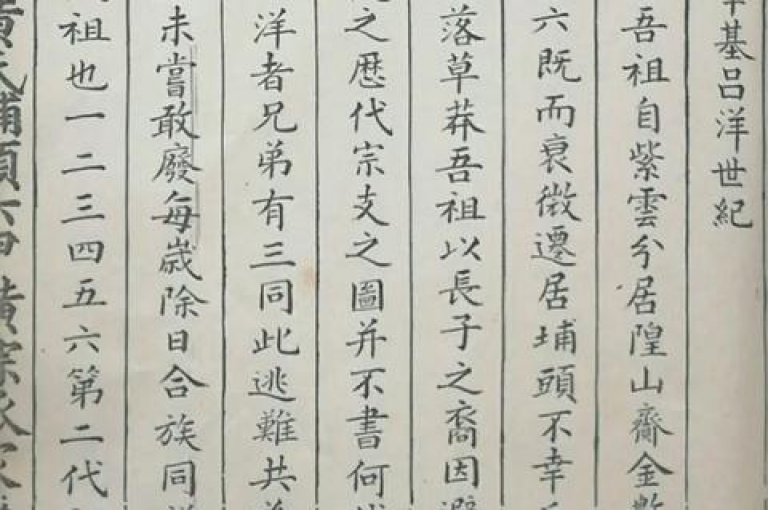 基呂洋世紀
吾祖自紫雲分居隍山齋金數
六既而衰微遷居埔頭不幸
落草莽吾祖以長子之裔因避
之歴代宗支之圖并不書何
洋者兄弟有三同此逃難共
未嘗敢廢每歲除日合族同
祖也一二三四五六第二代
黃氏埔頭六甲黃宗